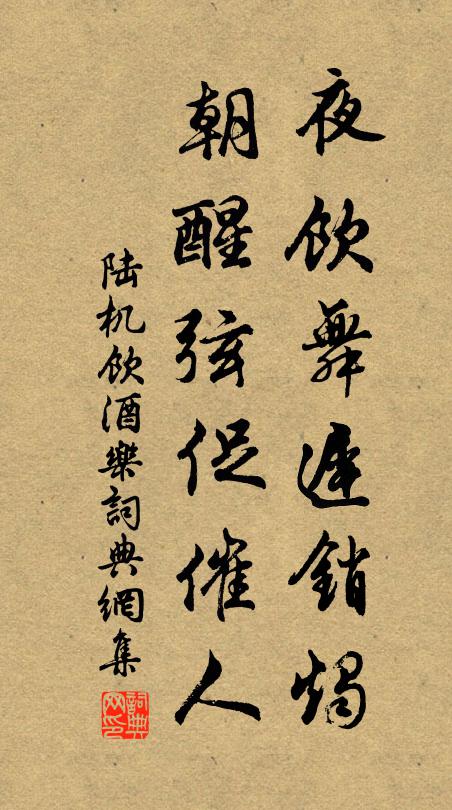 夜飲舞遲銷燭
朝醒弦促催人
陆机飲酒樂詞典網集
詞典网印